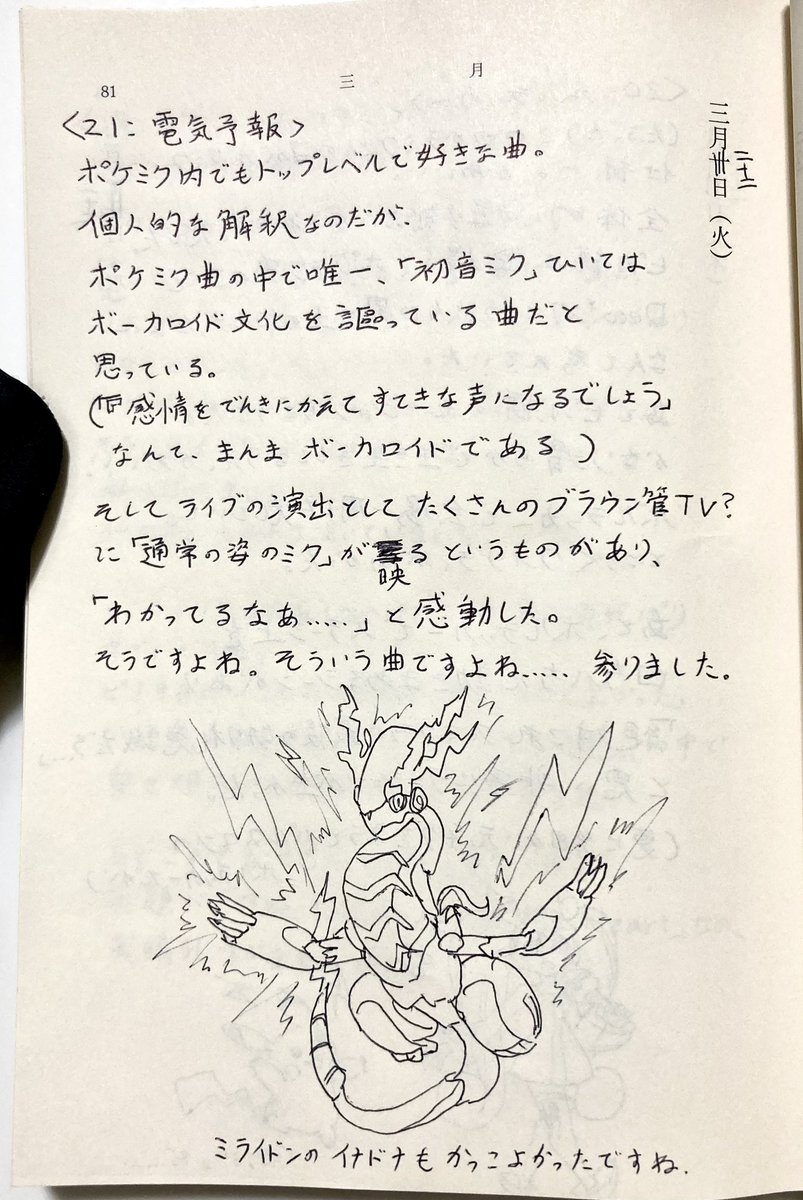 81
三月
三月卅日(火)
二十二
〈21:電気予報〉
ポケミク内でもトップレベルで好きな曲。
個人的な解釈なのだが、
ポケミク曲の中で唯一、「初音ミク」ひいては
ボーカロイド文化を謳っている曲だと
思っている。
(「感情をでんきにかえて すてきな声になるでしょう」
なんて、まんま ボーカロイドである)
そしてライブの演出として たくさんのブラウン管TV?
に「通学の姿のミク」が映る というものがあり、
「わかってるなあ……」と感動した。
そうですよね。そういう曲ですよね…… 参りました。
ミライドンの イナドナも かっこよかったですね.